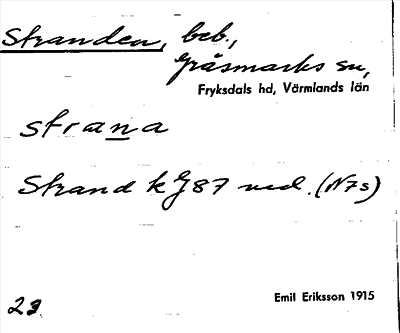 Stranden, beb.,
Gräsmarks sn,
Fryksdals hd, Värmlands län
strana
Strand k J87 ned. (N7s)
Emil Eriksson 1915